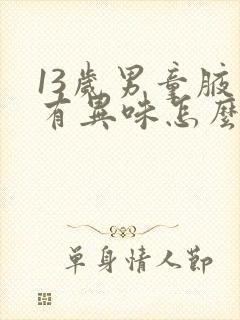 13歲男童腋
有異味怎麼
單身情人節